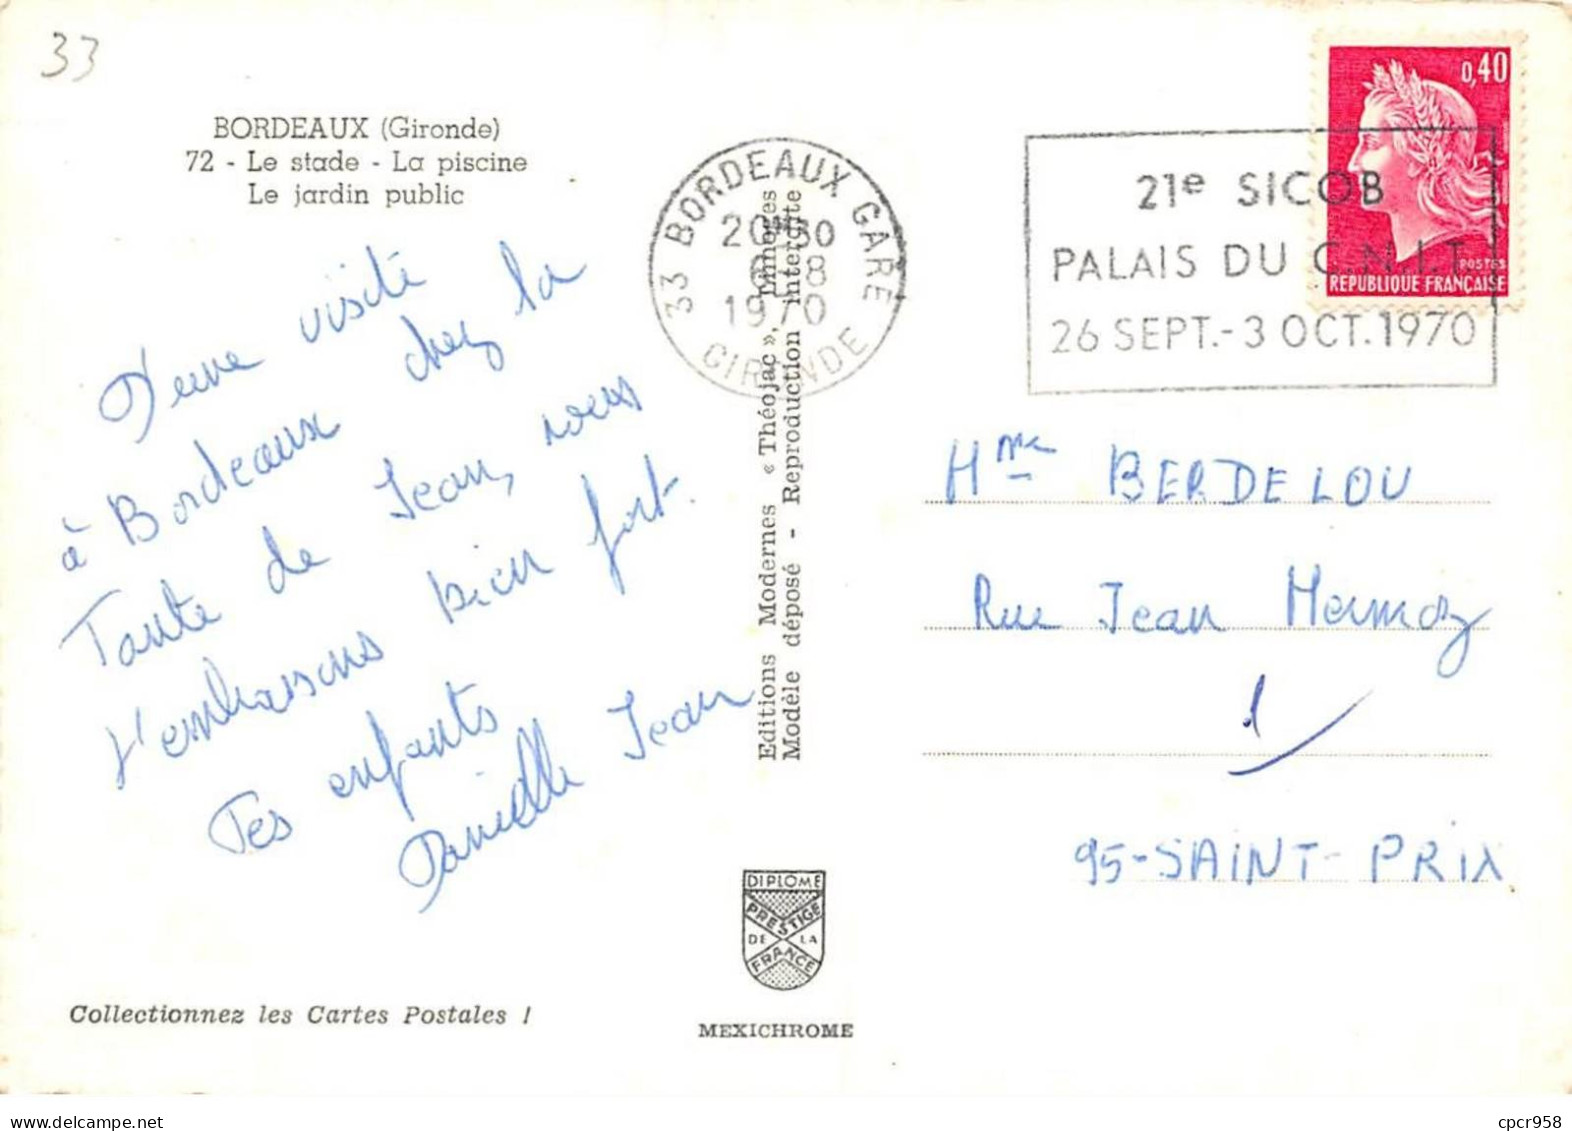 33
BORDEAUX (Gironde)
72 - Le stade - La piscine
Le jardin public
D'une visite
à Bordeaux chez la
Tante de Jean, nous
t'embrassons bien fort.
Tes enfants
Danielle Jean
Collectionnez les Cartes Postales !
Editions Modernes « Théojac », Limoges
Modèle déposé - Reproduction interdite
DIPLOME
PRESTIGE
DE LA
FRANCE
MEXICHROME
33 BORDEAUX GARE
20H30
1970
GIRONDE
21e SICOB
PALAIS DU C.N.I.T
26 SEPT.-3 OCT.1970
0,40
POSTES
REPUBLIQUE FRANÇAISE
Mme BERDELOU
Rue Jean Mermoz
1
95-SAINT-PRIX
cpcr958